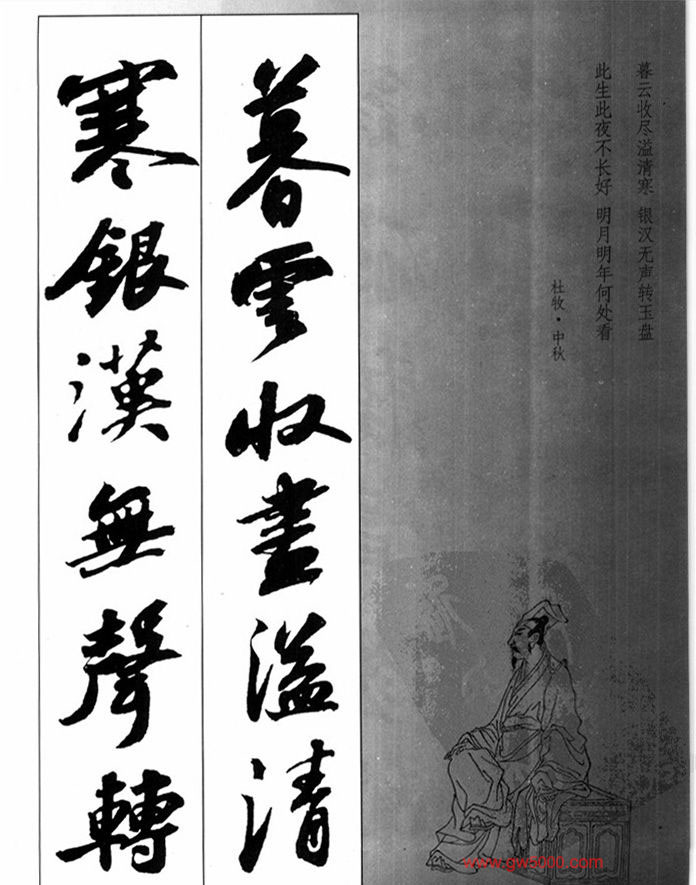 暮云收尽溢清寒 银汉无声转玉盘
此生此夜不长好 明月明年何处看
杜牧·中秋
暮雲收盡溢清
寒銀漢無聲轉
www.gw3000.com